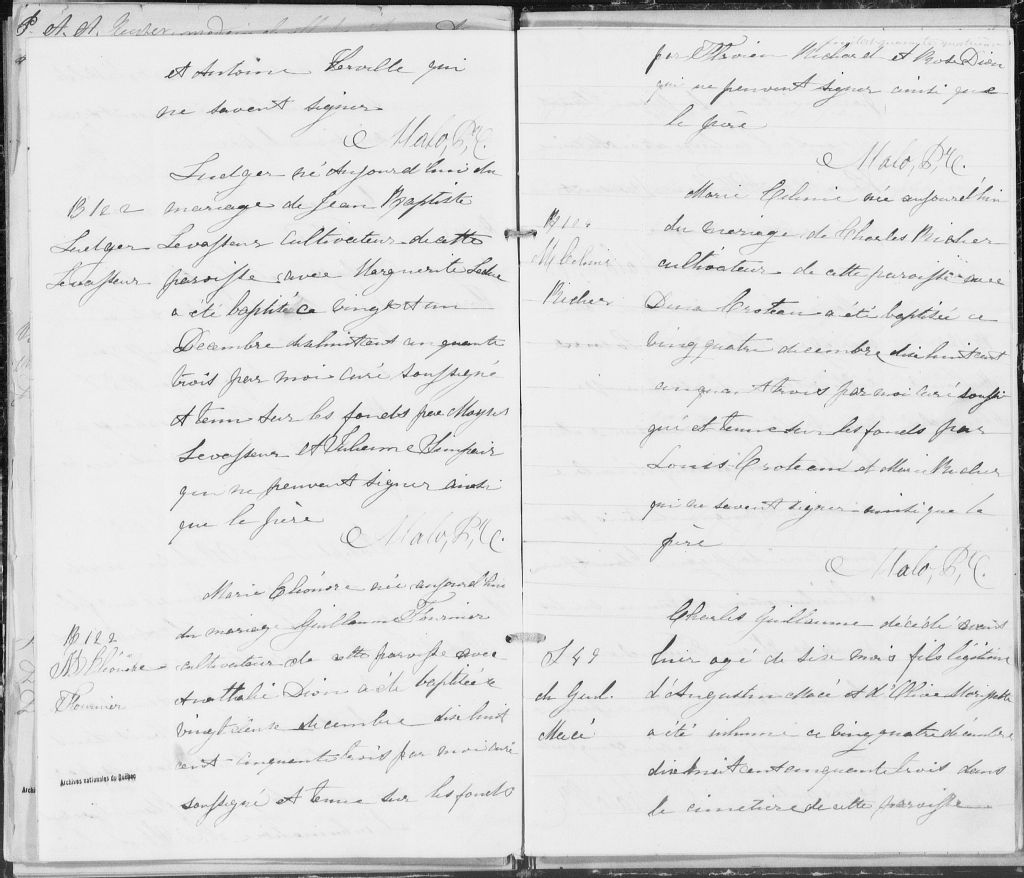 et Antoine Terville qui
ne savent signer
Malo, Ptr. C.
B 122
Ludger
Levasseur
Ludger né aujourd'hui du
mariage de Jean Baptiste
Levasseur cultivateur de cette
paroisse avec Marguerite
a été baptisé ce vingt et un
Decembre dix huit cent cinquante
trois par moi curé soussigné
et tenu sur les fonds par Moyse
Levasseur et
qui ne peuvent signer ainsi
que le père
Malo, Ptr. C.
B 122
M Eléonore
Fournier
Marie Eléonore née aujourd'hui
du mariage Guillaume Fournier
cultivateur de cette paroisse avec
Nathalie Dion a été baptisée ce
vingt deux decembre dix huit
cent cinquante trois par moi curé
soussigné et tenue sur les fonds
Archives nationales du Québec
par Flavien Richard et Rose Dion
qui ne peuvent signer ainsi que
le père
Malo, Ptr. C.
B 12
M Celanie
Richer
Marie Celanie née aujourd'hui
du mariage de Charles Richer
cultivateur de cette paroisse avec
Dina Croteau a été baptisée ce
vingt quatre decembre dix huit cent
cinquante trois par moi curé soussi
gné et tenue sur les fonds par
Louis Croteau et Marie Richer
qui ne savent signer ainsi que le
père
Malo, Ptr. C.
S 49
Ch Guil.
Macé
Charles Guillaume decedé avant
hier agé de six mois fils légitime
d'Augustin Macé et d'
a été inhumé ce vingt quatre décembre
dix huit cent cinquante trois dans
le cimetiere de cette paroisse